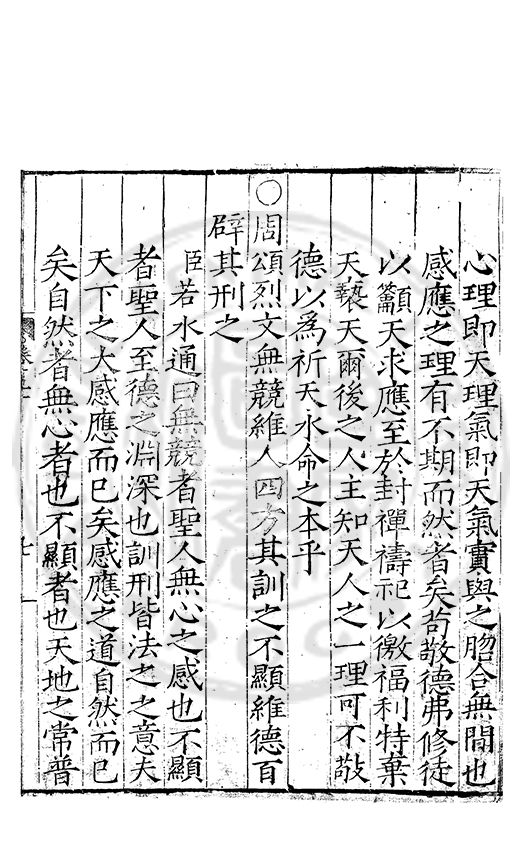 心理即天理氣即天氣實與之脗合無間也
感應之理有不期而然者矣苟敬德弗修徒
以籲天求應至於封禪禱祀以徼福利特棄
天褻天爾後之人主知天人之一理可不敬
德以爲祈天永命之本乎
○周頌烈文無競維人四方其訓之不顯維德百
辟其刑之
臣若水通曰無競者聖人無心之感也不顯
者聖人至德之淵深也訓刑皆法之之意夫
天下之大感應而已矣感應之道自然而已
矣自然者無心者也不顯者也天地之常普